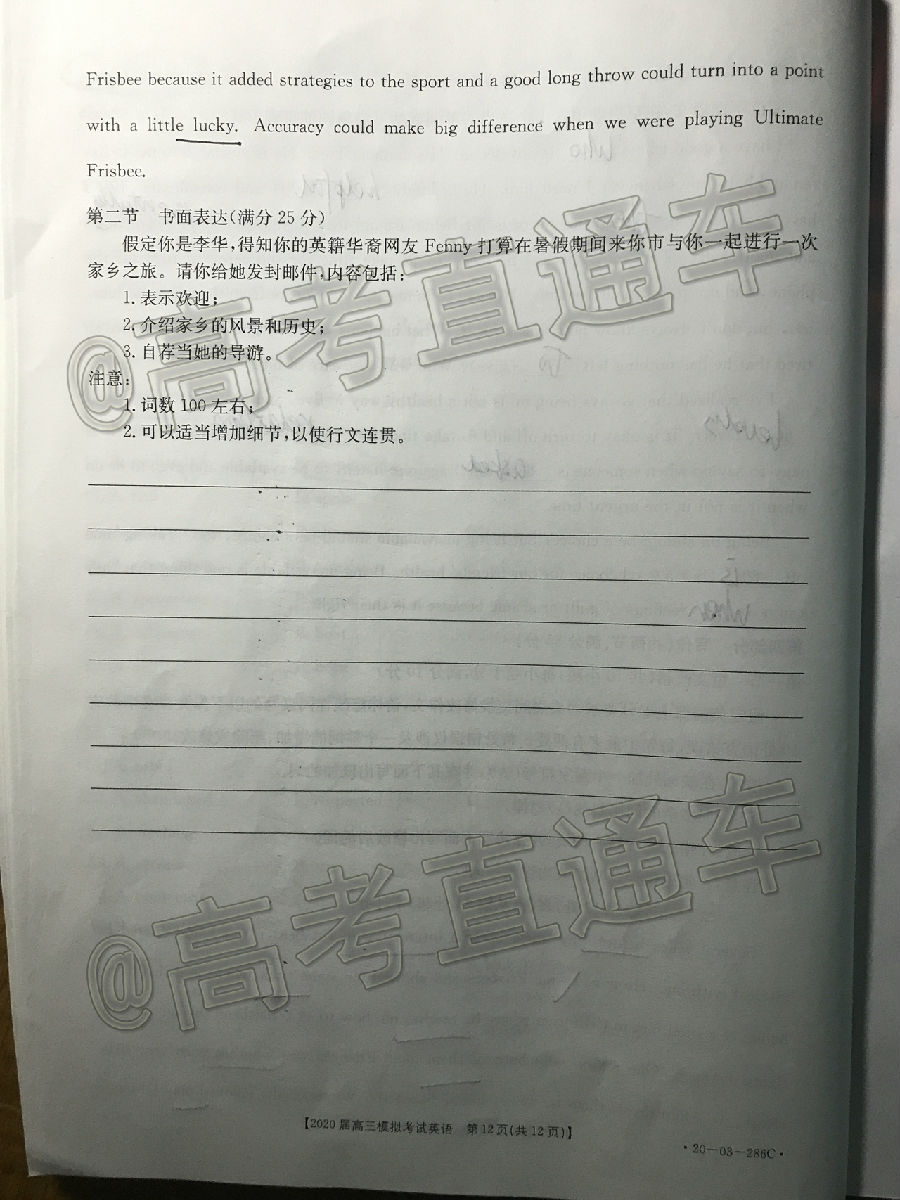 Frisbee because it added strategies to the sport and a good long throw could turn into a point
with a little lucky. Accuracy could make big difference when we were playing Ultimate
Frisbee.
第二节 书面表达(满分 25 分)
假定你是李华,得知你的英籍华裔网友 Fenny 打算在暑假期间来你市与你一起进行一次
家乡之旅。请你给她发封邮件,内容包括:
1. 表示欢迎;
2. 介绍家乡的风景和历史;
3. 自荐当她的导游。
注意:
1. 词数 100 左右;
2. 可以适当增加细节,以使行文连贯。
@高考直通车
@高考直通车
【2020 届高三模拟考试英语 第 12 页(共 12 页)】
·20-03-286C·